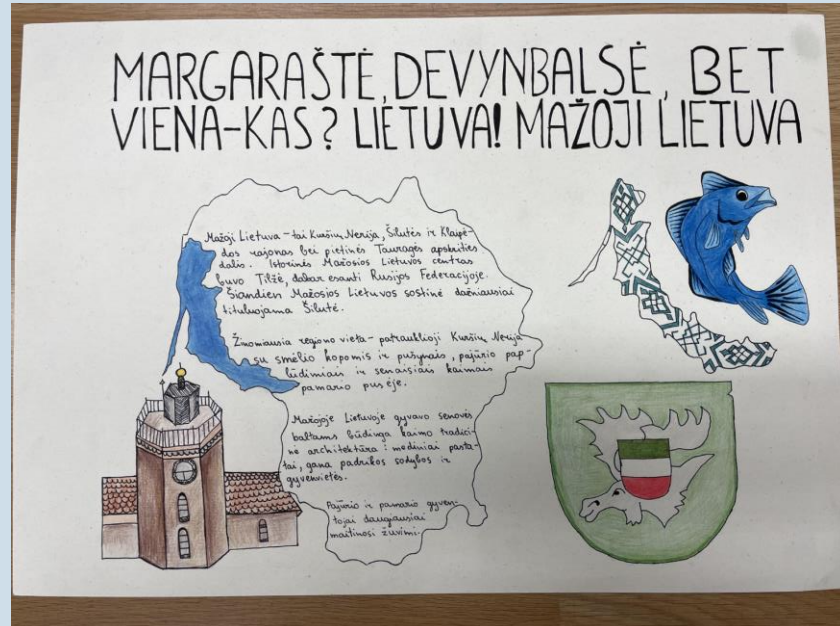 MARGARAŠTĖ, DEVYNBALSĖ, BET
VIENA-KAS? LIETUVA! MAŽOJI LIETUVA
Mažoji Lietuva - tai Kuršių Nerija, Šilutės ir Klaipė-
dos rajonas bei pietinės Tauragės apskrities
dalis. Istorinės Mažosios Lietuvos centras
buvo Tilžė, dabar esanti Rusijos Federacijoje.
Šiandien Mažosios Lietuvos sostinė dažniausiai
tituluojama Šilutė.
Žinomiausia regiono vieta - patrauklioji Kuršių Nerija
su smėlio kopomis ir pušynais, pajūrio pap-
lūdimiais ir senaisiais kaimais
pamario pusėje.
Mažojoje Lietuvoje gyvavo senovės
baltams būdinga kaimo tradici-
nė architektūra: mediniai pasta-
tai, gana padrikos sodybos ir
gyvenvietės.
Pajūrio ir pamario gyven-
tojai daugiausiai
maitinosi žuvimi.